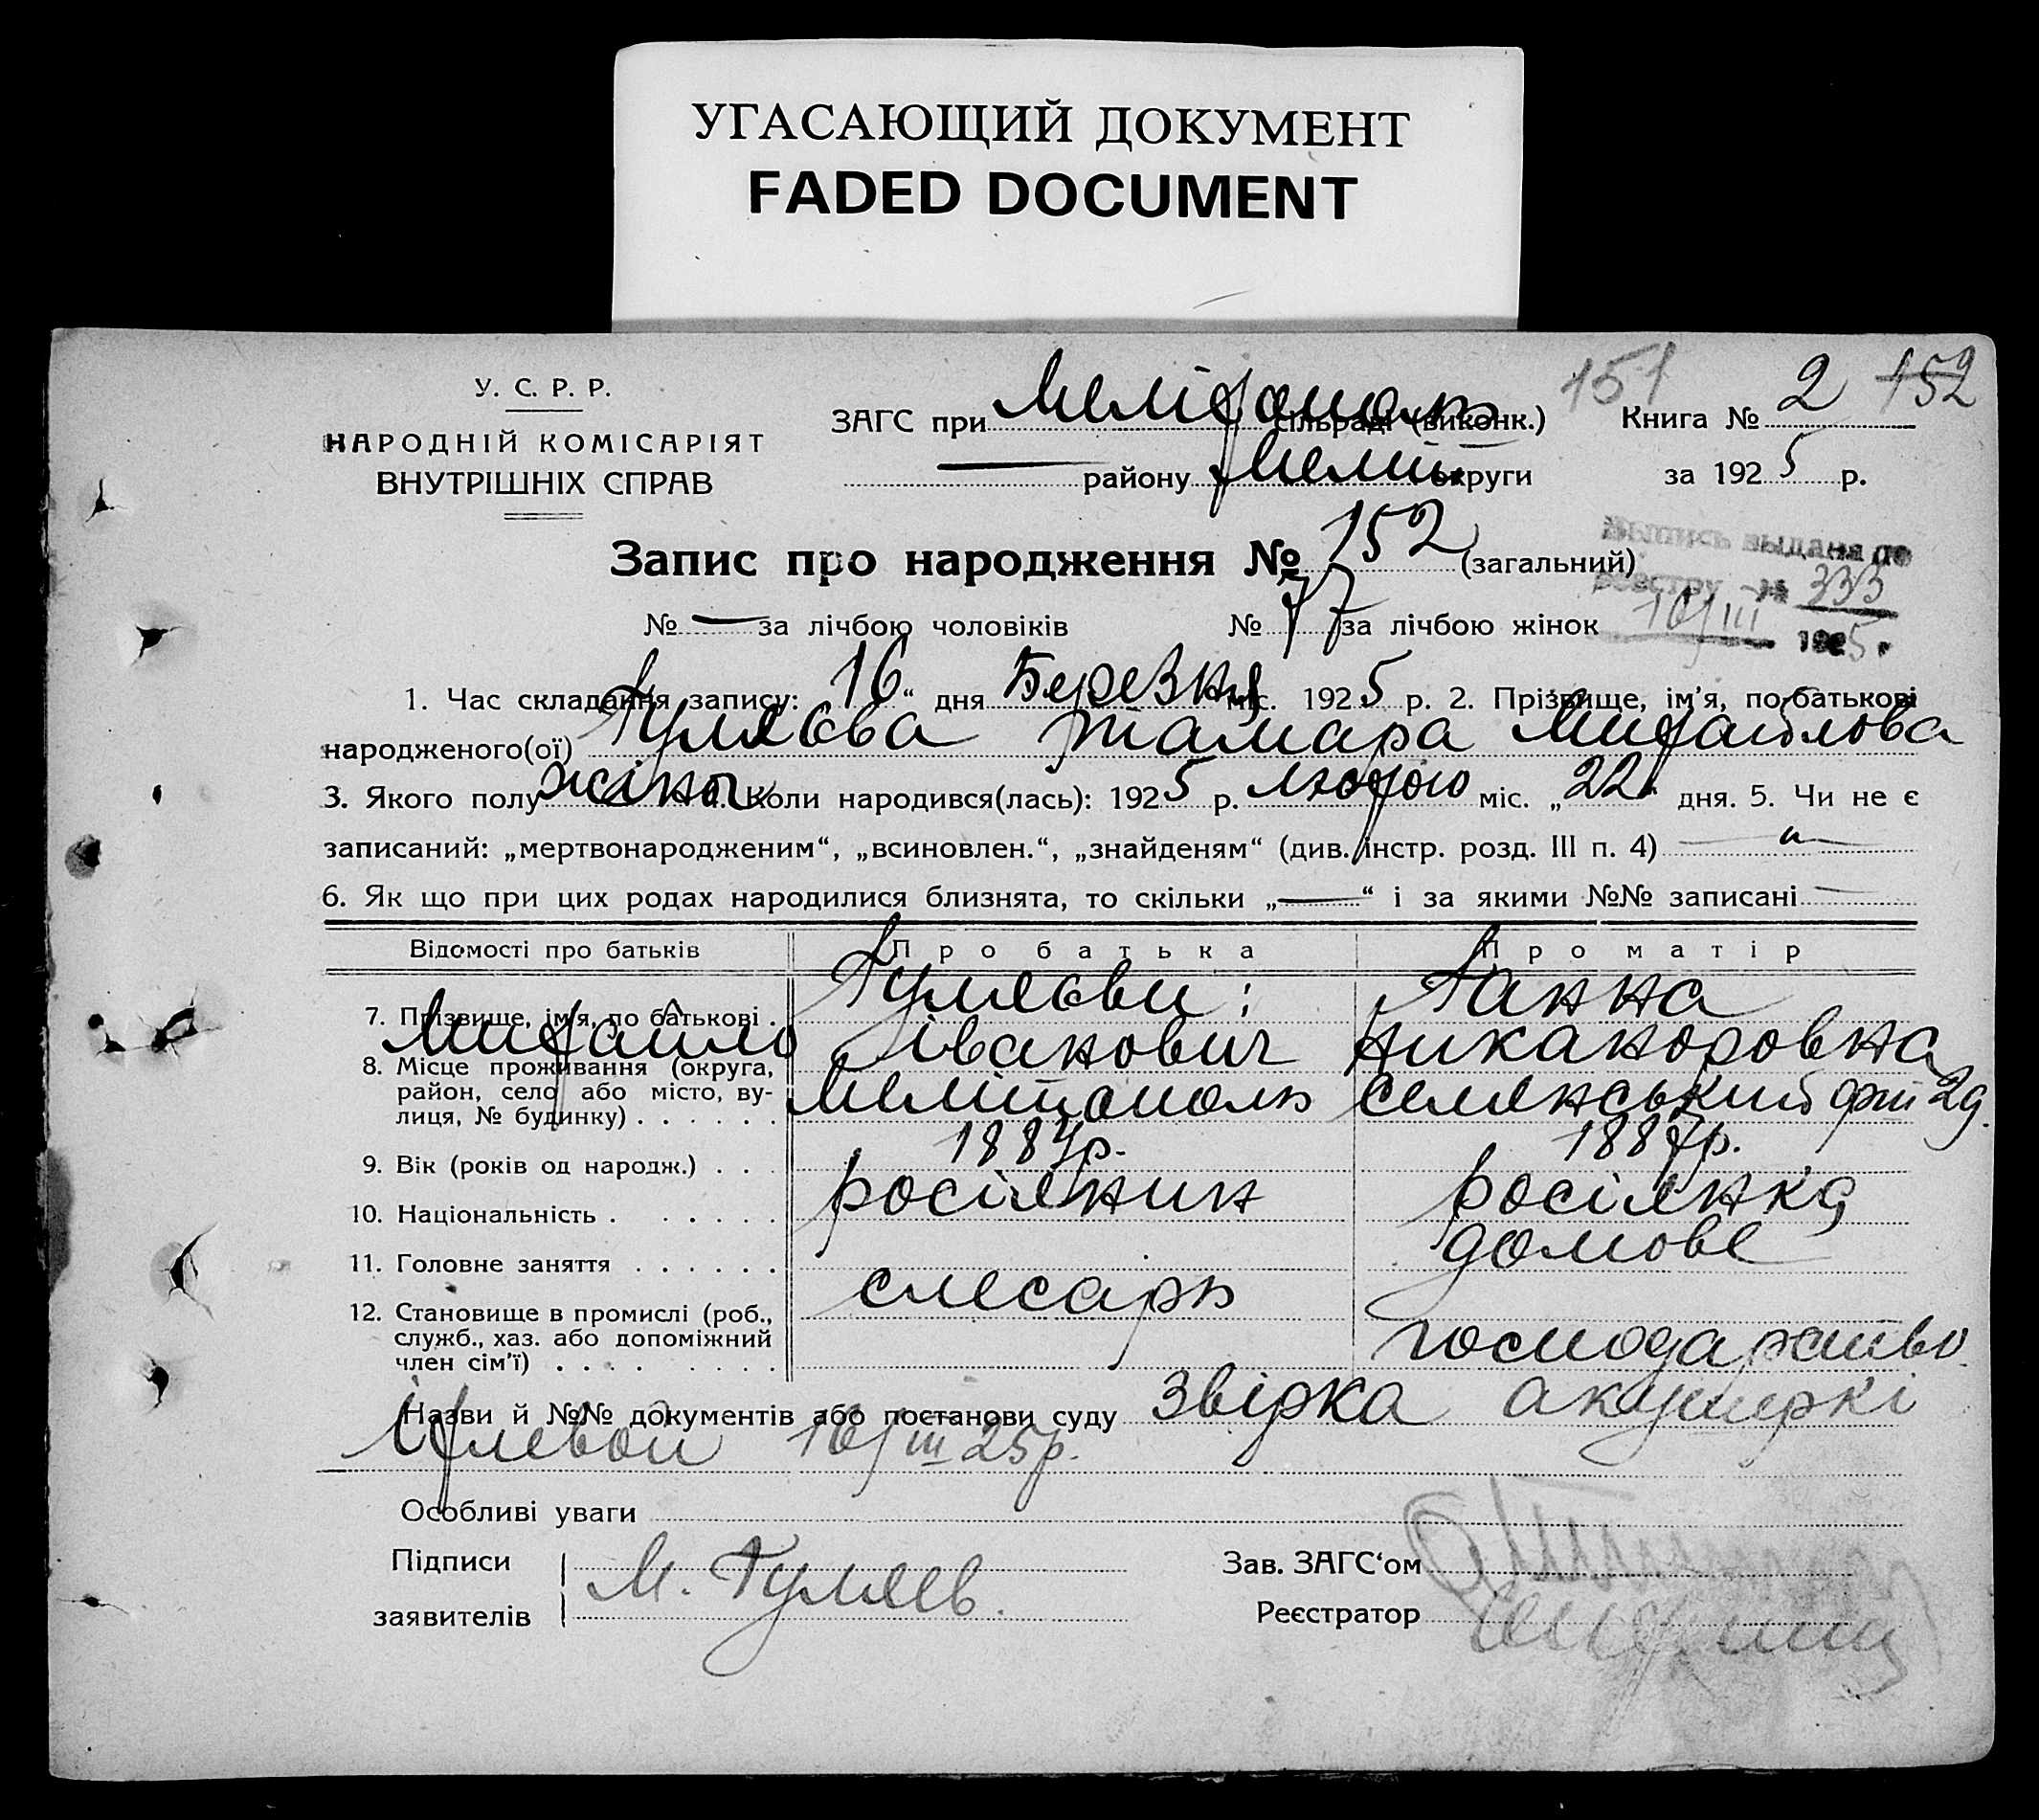 УГАСАЮЩИЙ ДОКУМЕНТ
FADED DOCUMENT
У. С. Р. Р.
НАРОДНІЙ КОМІСАРІЯТ
ВНУТРІШНІХ СПРАВ
ЗАГС при Мелітополь сільраді (виконк.)
— району Меліт. округи
151 152
Книга № 2
за 1925 р.
Запис про народження № 152 (загальний)
Выпись выдана по
реестру № 333
16/III 1925 г.
№ — за лічбою чоловіків № 77 за лічбою жінок
1. Час складання запису: 16 “ дня Березня міс. 1925 р. 2. Прізвище, ім’я, по-батькові
народженого(ої) Гуляєва Тамара Михайлова
3. Якого полу жіноч 4. Коли народився(лась): 1925 р. лютого міс. „22“ дня. 5. Чи не є
записаний: „мертвонародженим“, „всиновлен.“, „знайденям“ (див. інстр. розд. III п. 4) —
6. Як що при цих родах народилися близнята, то скільки „—“ і за якими №№ записані —
Відомості про батьків Про батька Про матір
7. Прізвище, ім’я, по батькові . Гуляєви: Ганна
Михайло Іванович Никаноровна
8. Місце проживання (округа,
район, село або місто, ву-
лиця, № будинку) . . . . . . Мелітополь Селянський 29
9. Вік (років од народж.) . . . 1884р. 1887р.
10. Національність . . . . . . росіянин росіянка
11. Головне заняття . . . . . . слесарь домове
12. Становище в промислі (роб.,
служб., хаз. або допоміжний
член сім’ї) . . . . . . . . господарство
Назви й №№ документів або постанови суду Звірка акушеркі
16/III 25р.
Особливі уваги
Підписи
заявителів М. Гуляев.
Зав. ЗАГС‘ом
Реєстратор